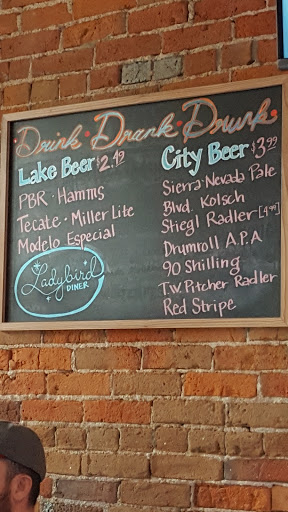 Drink • Drank • Drunk
Lake Beer $2.49
PBR • Hamms
Tecate • Miller Lite
Modelo Especial
Ladybird
DINER
City Beer $3.99
Sierra Nevada Pale
Blvd. Kolsch
Stiegl Radler [4.99]
Drumroll A.P.A
90 Shilling
T.W. Pitcher Radler
Red Stripe